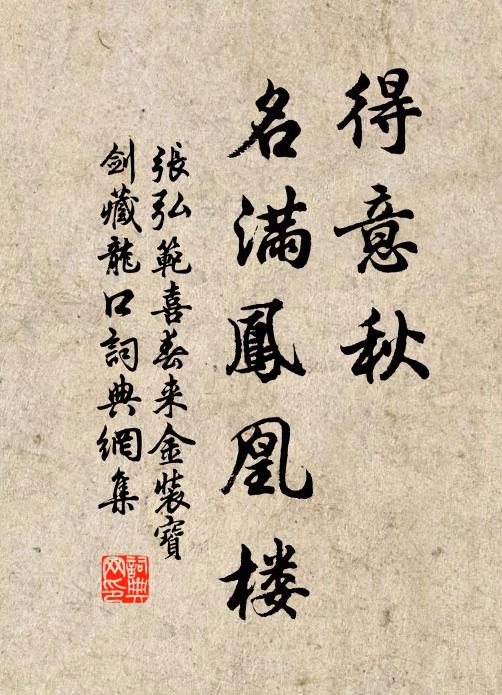 得意秋
名满鳳凰楼
張弘範喜春来金裝寶
劍藏龍口詞典網集
詞典
网印